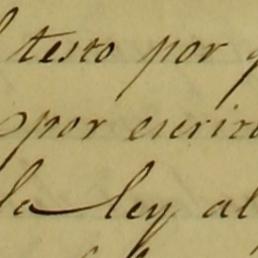 testo por
por escrito
la ley al